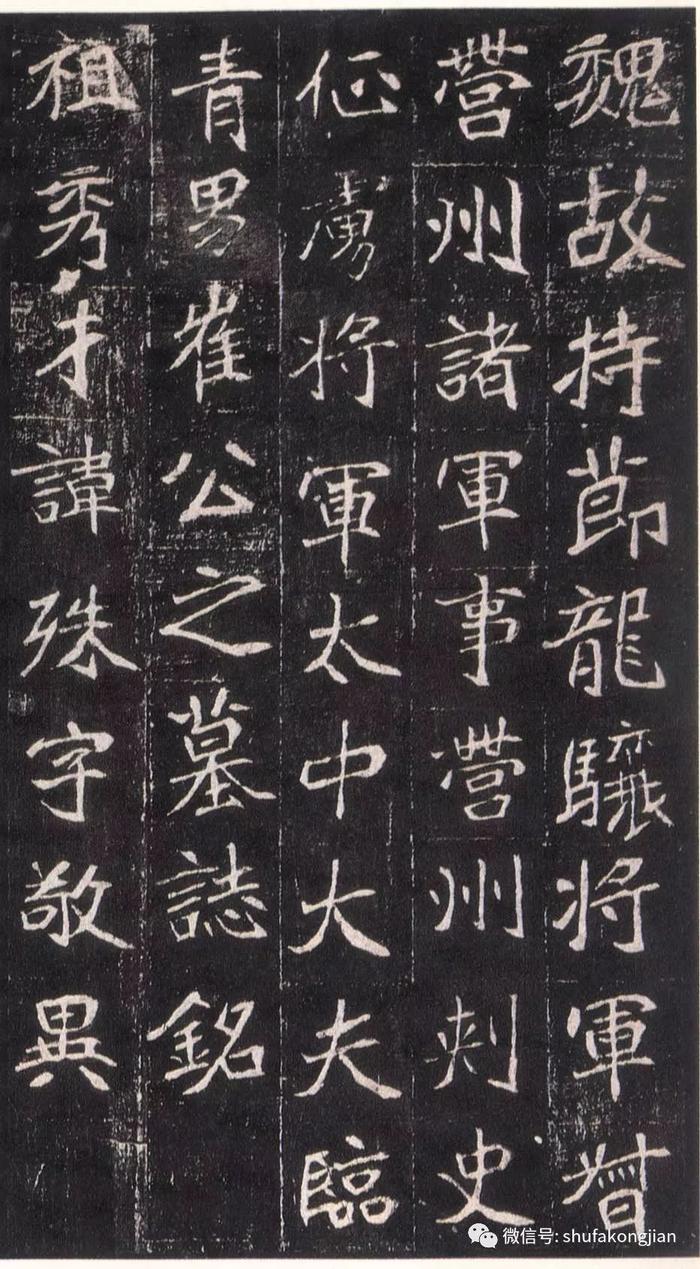 魏故持節龍驤將軍督
營州諸軍事營州刺史
征虜將軍太中大夫臨
青男崔公之墓誌銘
祖秀才諱殊字敬異
微信号: shufakongjian